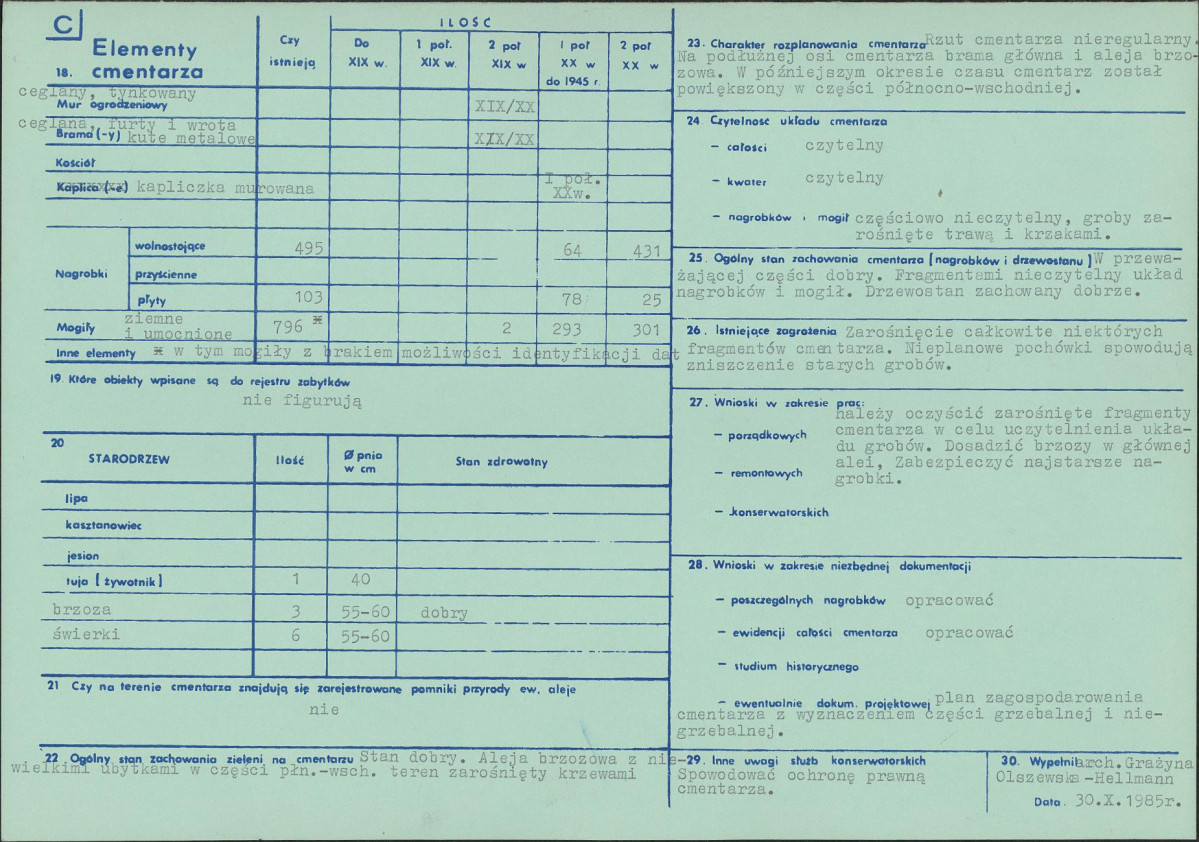 C
Elementy
18. cmentarza
Czy
istnieją
ILOŚC
Do
XIX w.
1 poł.
XIX w.
2 poł
XIX w
I poł
XX w
do 1945 r.
2 poł
XX w
ceglany, tynkowany
Mur ogrodzeniowy XIX/XX
ceglana, furty i wrota
Brama (-y) kute metalowe XIX/XX
Kościół
Kaplica (-e) kapliczka murowana I poł.
XXw.
Nagrobki
wolnostojące 495 64 431
przyścienne
płyty 103 78 25
Mogiły ziemne
i umocnione 796 ж 2 293 301
Inne elementy ж w tym mogiły z brakiem możliwości identyfikacji dat
19. Które obiekty wpisane są do rejestru zabytków
nie figurują
20
STARODRZEW Ilość Ø pnia
w cm Stan zdrowotny
lipa
kasztanowiec
jesion
tuja [ żywotnik ] 1 40
brzoza 3 55-60 dobry
świerki 6 55-60
21 Czy na terenie cmentarza znajdują się zarejestrowane pomniki przyrody ew. aleje
nie
22 Ogólny stan zachowania zieleni na cmentarzu Stan dobry. Aleja brzozowa z nie-
wielkimi ubytkami w części płn.-wsch. teren zarośnięty krzewami
23. Charakter rozplanowania cmentarza Rzut cmentarza nieregularny.
Na podłużnej osi cmentarza brama główna i aleja brzo-
zowa. W późniejszym okresie czasu cmentarz został
powiększony w części północno-wschodniej.
24 Czytelność układu cmentarza
- całości czytelny
- kwater czytelny
- nagrobków i mogił częściowo nieczytelny, groby za-
rośnięte trawą i krzakami.
25. Ogólny stan zachowania cmentarza [ nagrobków i drzewostanu ] W przewa-
żającej części dobry. Fragmentami nieczytelny układ
nagrobków i mogił. Drzewostan zachowany dobrze.
26. Istniejące zagrożenia Zarośnięcie całkowite niektórych
fragmentów cmentarza. Nieplanowe pochówki spowodują
zniszczenie starych grobów.
27. Wnioski w zakresie prac:
należy oczyścić zarośnięte fragmenty
- porządkowych cmentarza w celu uczytelnienia ukła-
du grobów. Dosadzić brzozy w głównej
alei, Zabezpieczyć najstarsze na-
- remontowych grobki.
- konserwatorskich
28. Wnioski w zakresie niezbędnej dokumentacji
- poszczególnych nagrobków opracować
- ewidencji całości cmentarza opracować
- studium historycznego
- ewentualnie dokum. projektowej plan zagospodarowania
cmentarza z wyznaczeniem części grzebalnej i nie-
grzebalnej.
29. Inne uwagi służb konserwatorskich
Spowodować ochronę prawną
cmentarza.
30. Wypełnił arch. Grażyna
Olszewska-Hellmann
Data. 30.X.1985r.